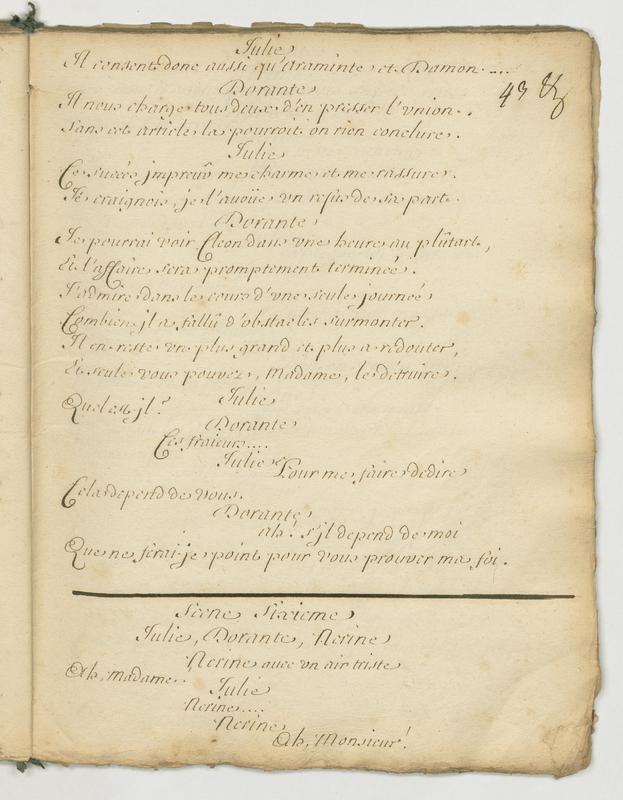 Julie
Il consent donc aussi qu'Araminte et Damon ....
Dorante
Il nous charge tous deux d'en presser l'vnion.
43
Sans cet article la pourroit on rien conclure.
Julie
Ce succés jmpreuû me charme et me rassure.
Je craignois, je l'avoüe vn refus de sa part.
Dorante
Je pourrai voir Cleon dans vne heure au plûtart,
Et l'affaire sera promptement terminée.
J'admire dans le cours d'vne seule journée
Combien jl a fallû d'obstacles surmonter.
Il en reste vn plus grand et plus a redouter,
Et seule vous pouvez, Madame, le détruire.
Julie
Quel est jl?
Dorante
Ces fraieurs....
Julie
Pour me faire dedire
Cela depend de vous.
Dorante
ah! s'jl depend de moi
Que ne ferai-je point pour vous prouver ma foi.
Scene Sixieme
Julie, Dorante, Nerine
Nerine avec vn air triste
Ah, madame..
Julie
Nerine....
Nerine
Ah, Monsieur!